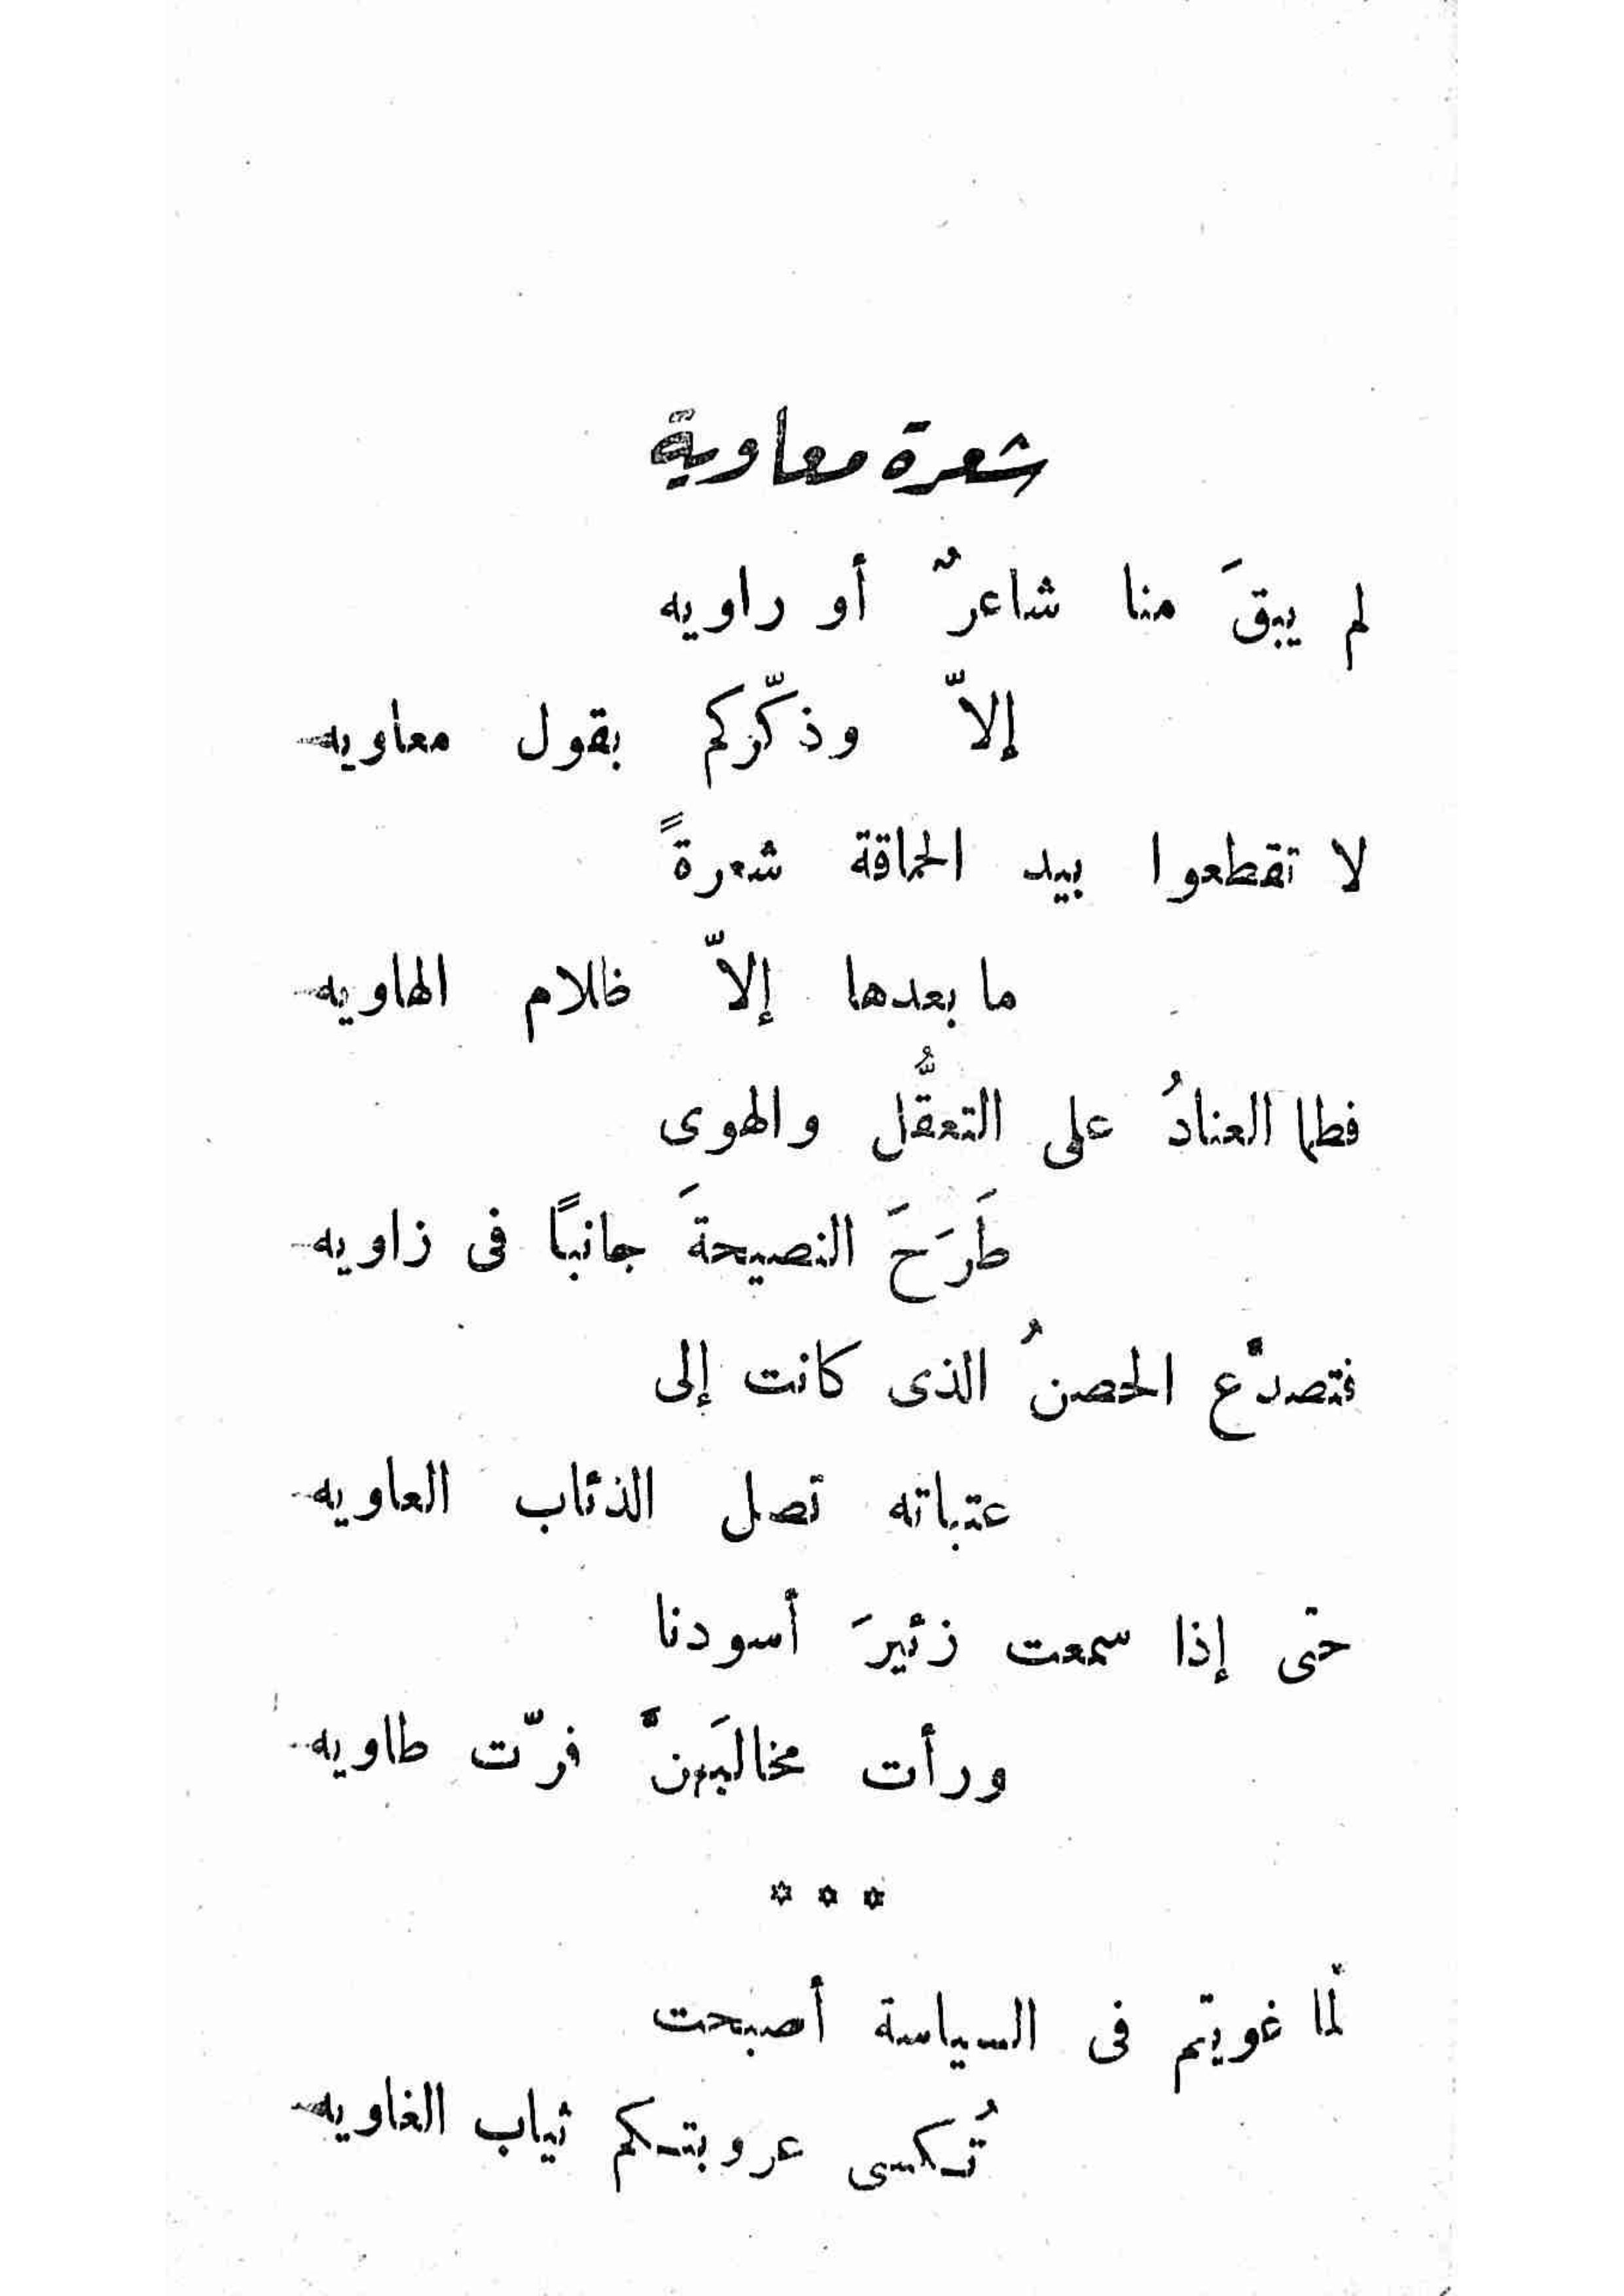 شعرة معاوية
لم يبقَ منا شاعرٌ أو راويه
إلاّ وذكّركم بقول معاويه
لا تقطعوا بيد الحماقة شعرةً
ما بعدها إلاّ ظلام الهاويه
فطما العنادُ على التعقُّل والهوى
طَرَحَ النصيحةَ جانبًا فى زاويه
فتصدّع الحصنُ الذى كانت إلى
عتباته تصل الذئاب العاويه
حتى إذا سمعت زئيرَ أسودنا
ورأت مخالبَهنَّ فرّت طاويه
* * *
لمّا غويتم فى السياسة أصبحت
تُكسى عروبتكم ثياب الغاويه